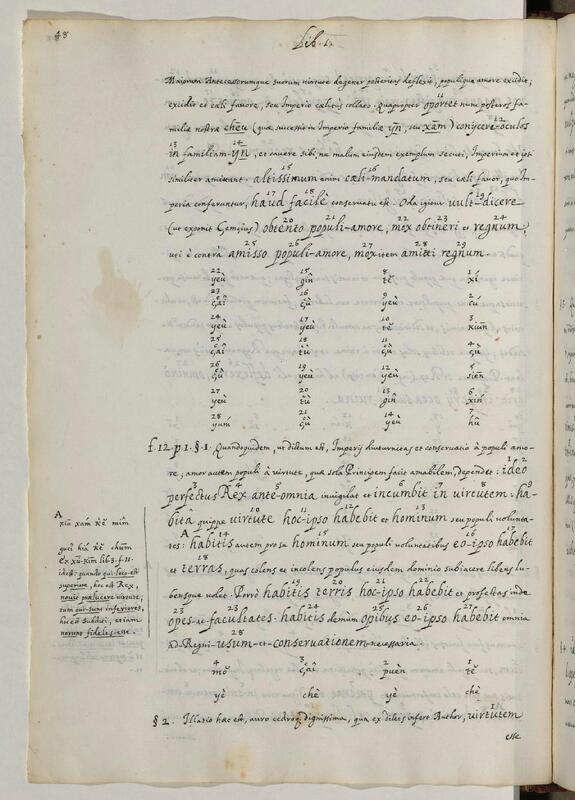 48
Lib. 1.
Maiorum Antecessorumque suorum virtute degener posteritas deflexit, populique amore excidit;
excidit et cæli favore, seu Imperio cælitus collato. Quapropter oportet nunc posteros fa-
miliæ nostræ cheu (quæ successit in Imperio familiæ yn, seu xam) conijcere oculos
in familiam yn, et cavere sibi, ne malum eiusdem exemplum secuti, Imperium et ipsi
similiter amittant. altissimum enim cæli mandatum, seu cæli favor, quo Im-
peria conferuntur, haud facilè conservatu est. Oda igitur vult dicere
(ut exponit) obtento populi amore, mox obtineri et regnum,
uti è contrà amisso populi amore, mox item amitti regnum.
22 yeù 15 8 tĕ 1 xī
23 16 9 yeù 2
24 yeù 17 yeù 10 tĕ 3
25 18 11 4
26 19 yeù 12 yeù 5 siēn
27 yeù 20 13 6 xīn
28 yum 21 14 yeù 7 hū
f. 12. p. 1. § 1. Quandoquidem, ut dictum est, Imperij diuturnitas et conservatio à populi amo-
re; amor autem populi à virtute, quæ sola Principem facit amabilem, dependet: ideo
perfectus Rex ante omnia invigilat et incumbit in virtutem: ha-
bitâ quippe virtute hoc ipso habebit et hominum seu populi volunta-
tes: habitis autem hominum seu populi voluntatibus eo ipso habebit
et terras, quas colens et incolens populus eiusdem dominio subiacere libens lu-
bensque volet. Porrò habitis terris hoc ipso habebit et profectas inde
opes ac facultates. habitis demùm opibus eo ipso habebit omnia
ad Regni usum et conservationem necessaria.
A
idest: quando qui loco est
superiore, hoc est Rex,
novit prælucere virtute;
tum qui sunt inferiores,
hoc est subditi, etiam
norunt fideles esse.
4 3 2 puèn 1 tĕ
yè chè yè chè
§ 2. Illatio hæc est, auro cedroque dignissima, qua ex dictis infert Author, virtutem
esse